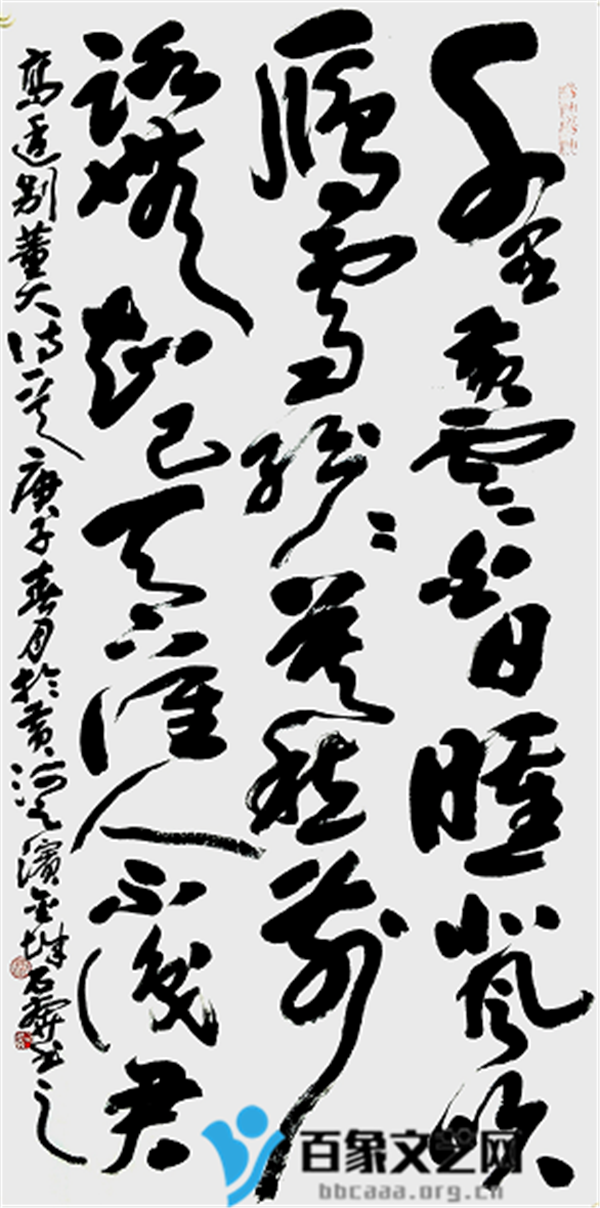 千里黄雲白日曛北風吹
雁雪紛紛莫愁前
路無知己天下誰人不識君
高適别董大詩一首庚子春月於黄河之濱金城石書之
百象文艺网
bbcaaa.org.cn